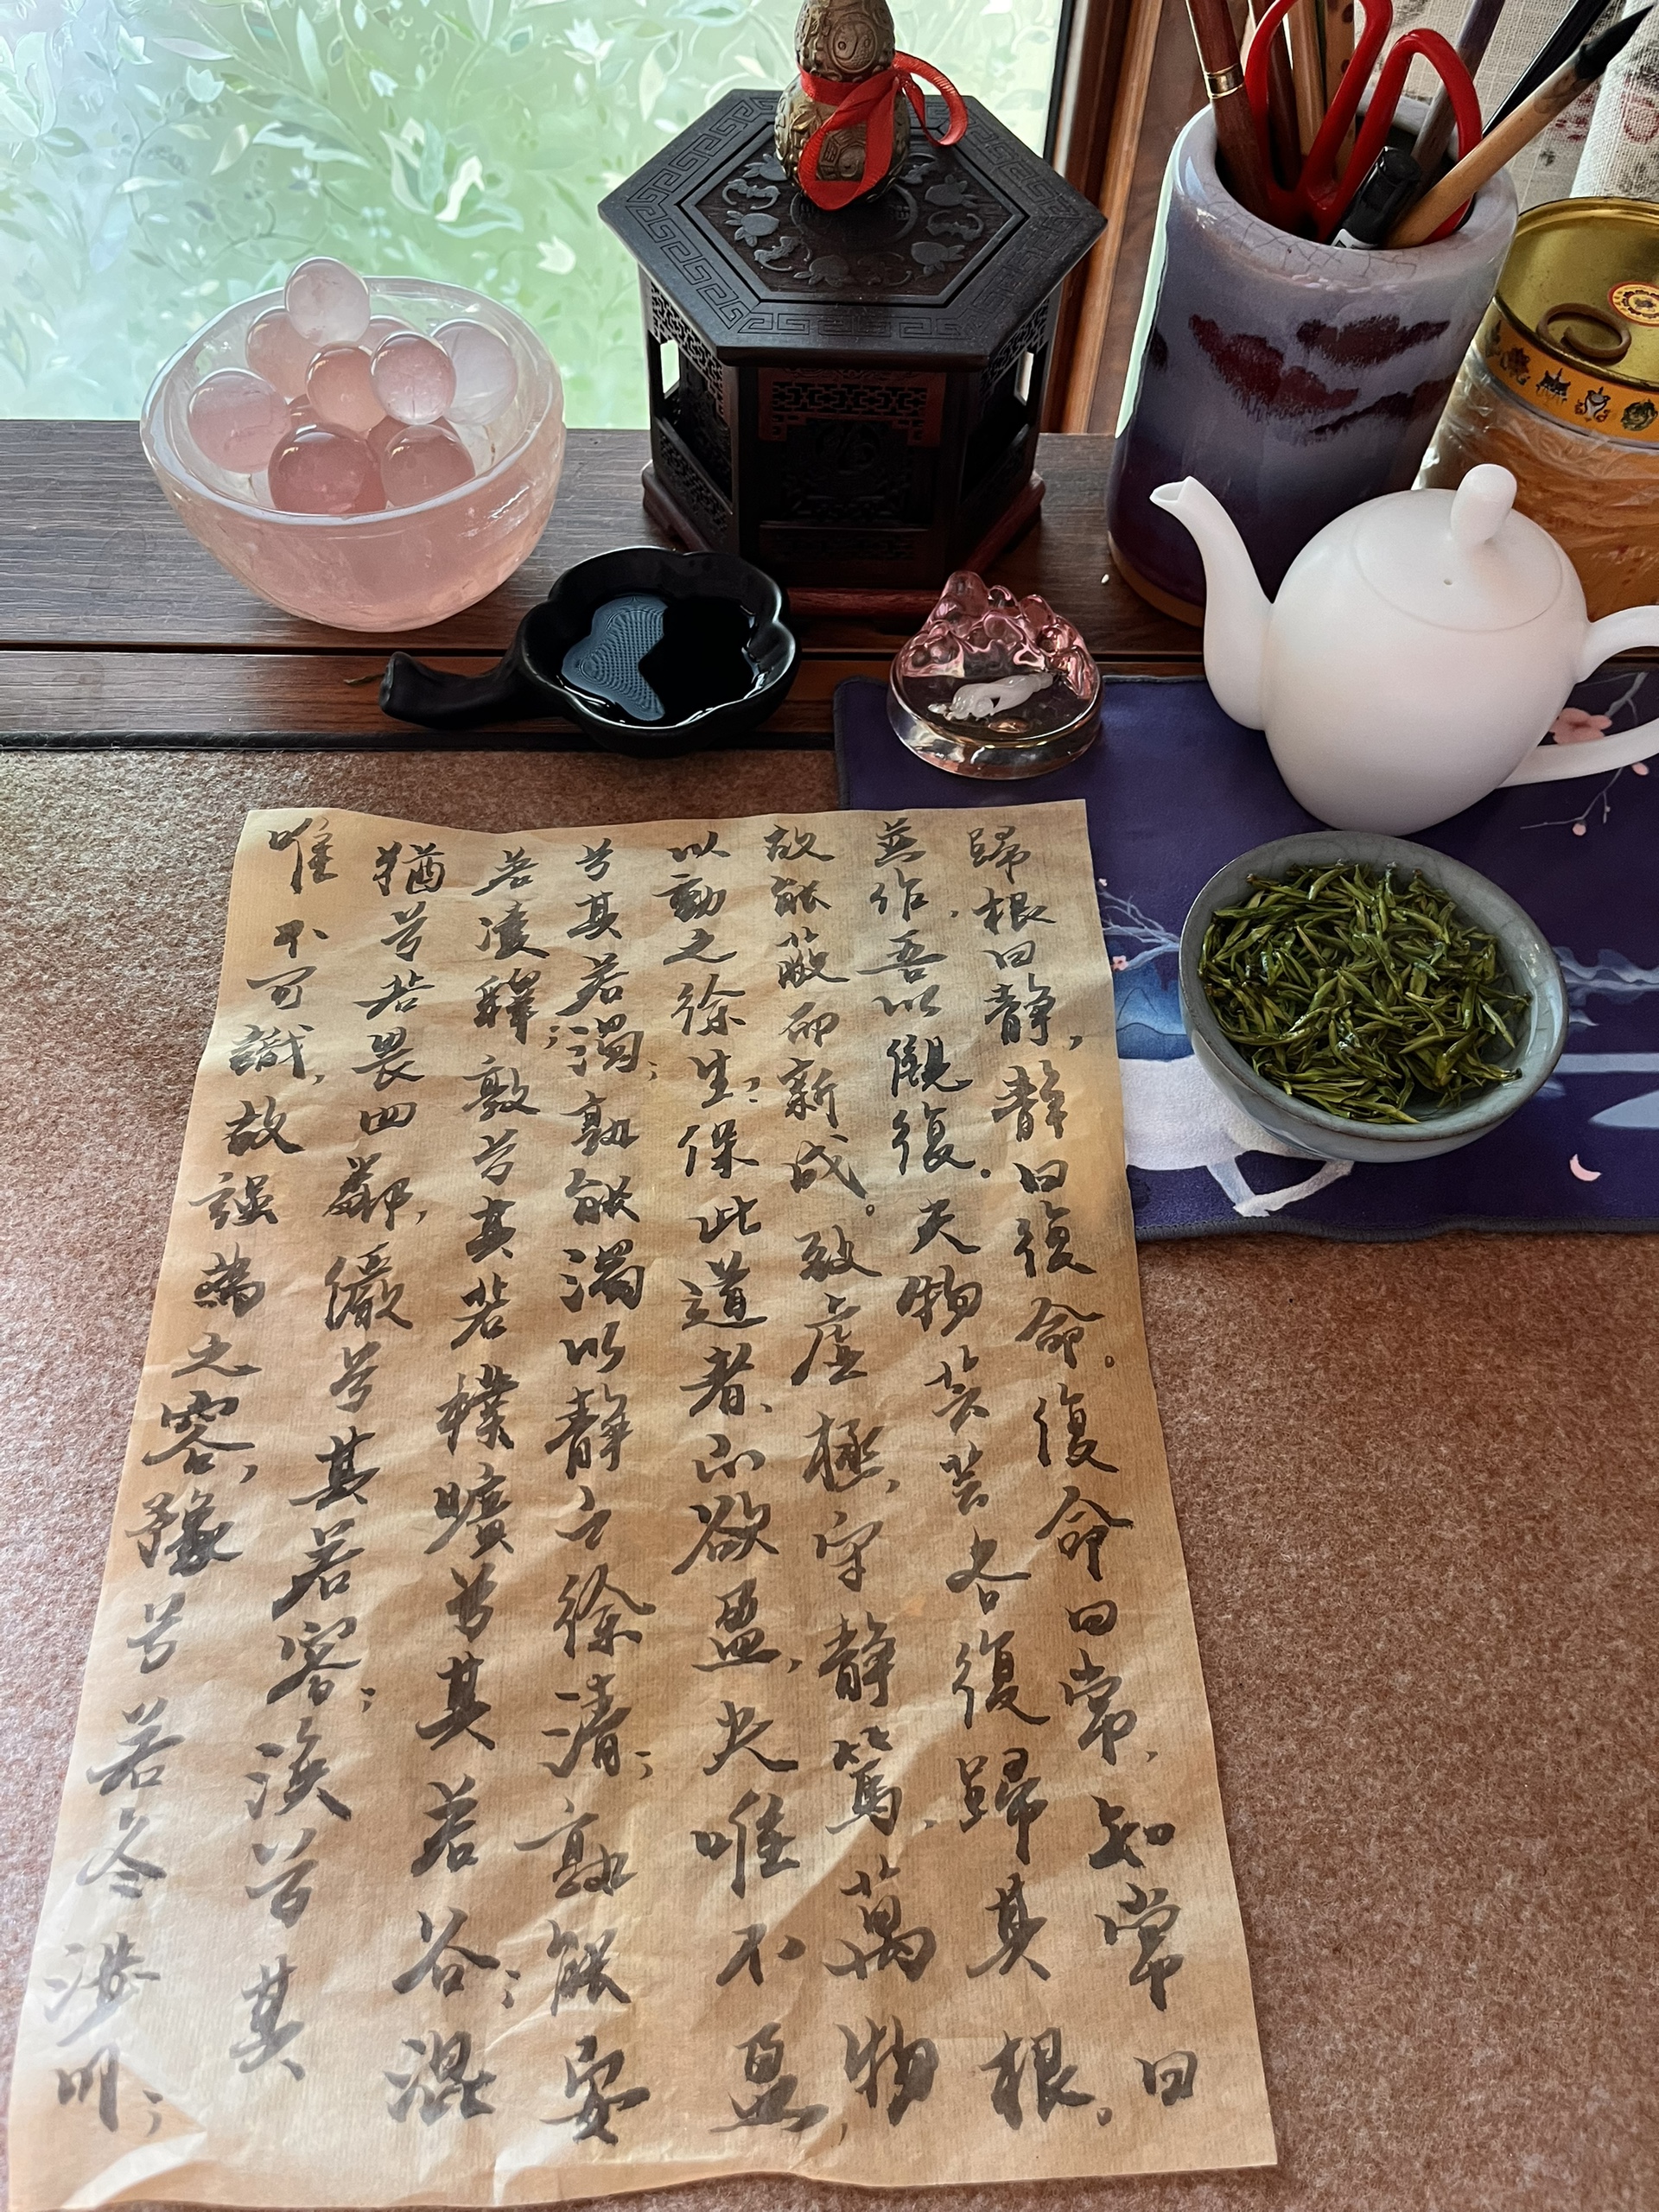 唯不可識,故强為之容,豫兮若冬涉川;
猶兮若畏四鄰,儼兮其若容;渙兮其
若凌釋;敦兮其若樸曠兮其若谷;混
兮其若濁;孰能濁以靜之徐清;孰能安
以動之徐生;保此道者、不欲盈,夫唯不盈,
故能蔽而新成。致虛極,守靜篤,萬物
並作,吾以觀復。夫物芸芸各復歸其根。
歸根曰靜,靜曰復命。復命曰常,知常曰